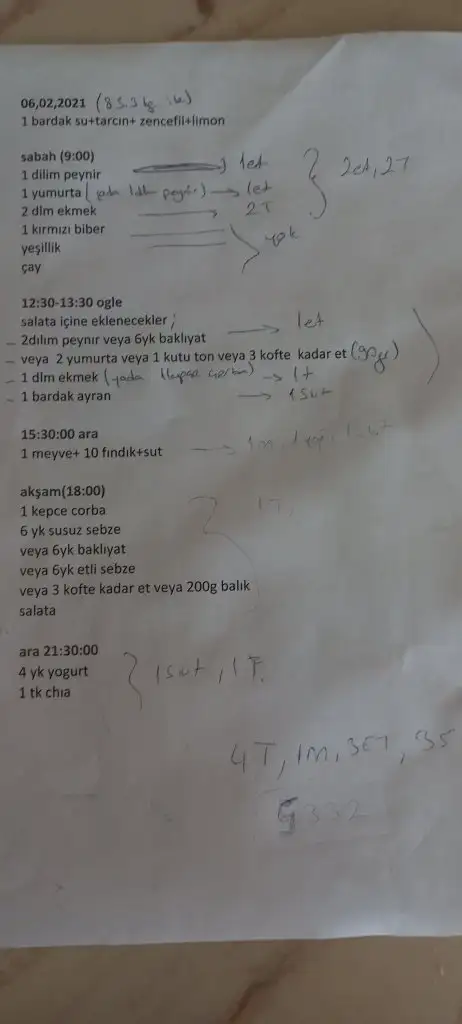 06,02,2021 (83.3 kg
1 bardak su+tarcın+ zencefil+limon
sabah (9:00)
1 dilim peynir 1et
1 yumurta (yada 1dlm peynir) → 1et } 2et, 2T
2 dlm ekmek → 2T
1 kırmızı biber
yeşillik yok
çay
12:30-13:30 ogle
salata içine eklenecekler ;
– 2dılım peynır veya 6yk baklıyat → 1et
– veya 2 yumurta veya 1 kutu ton veya 3 kofte kadar et (90gr)
– 1 dlm ekmek (yada 1kepçe çorba) → 1t
– 1 bardak ayran → 1sut
15:30:00 ara
1 meyve+ 10 fındık+sut → 1m,
akşam(18:00)
1 kepce corba 1T,
6 yk susuz sebze
veya 6yk baklıyat
veya 6yk etli sebze
veya 3 kofte kadar et veya 200g balık
salata
ara 21:30:00
4 yk yogurt } 1sut, 1T.
1 tk chıa
4T, 1m, 3ET, 3S